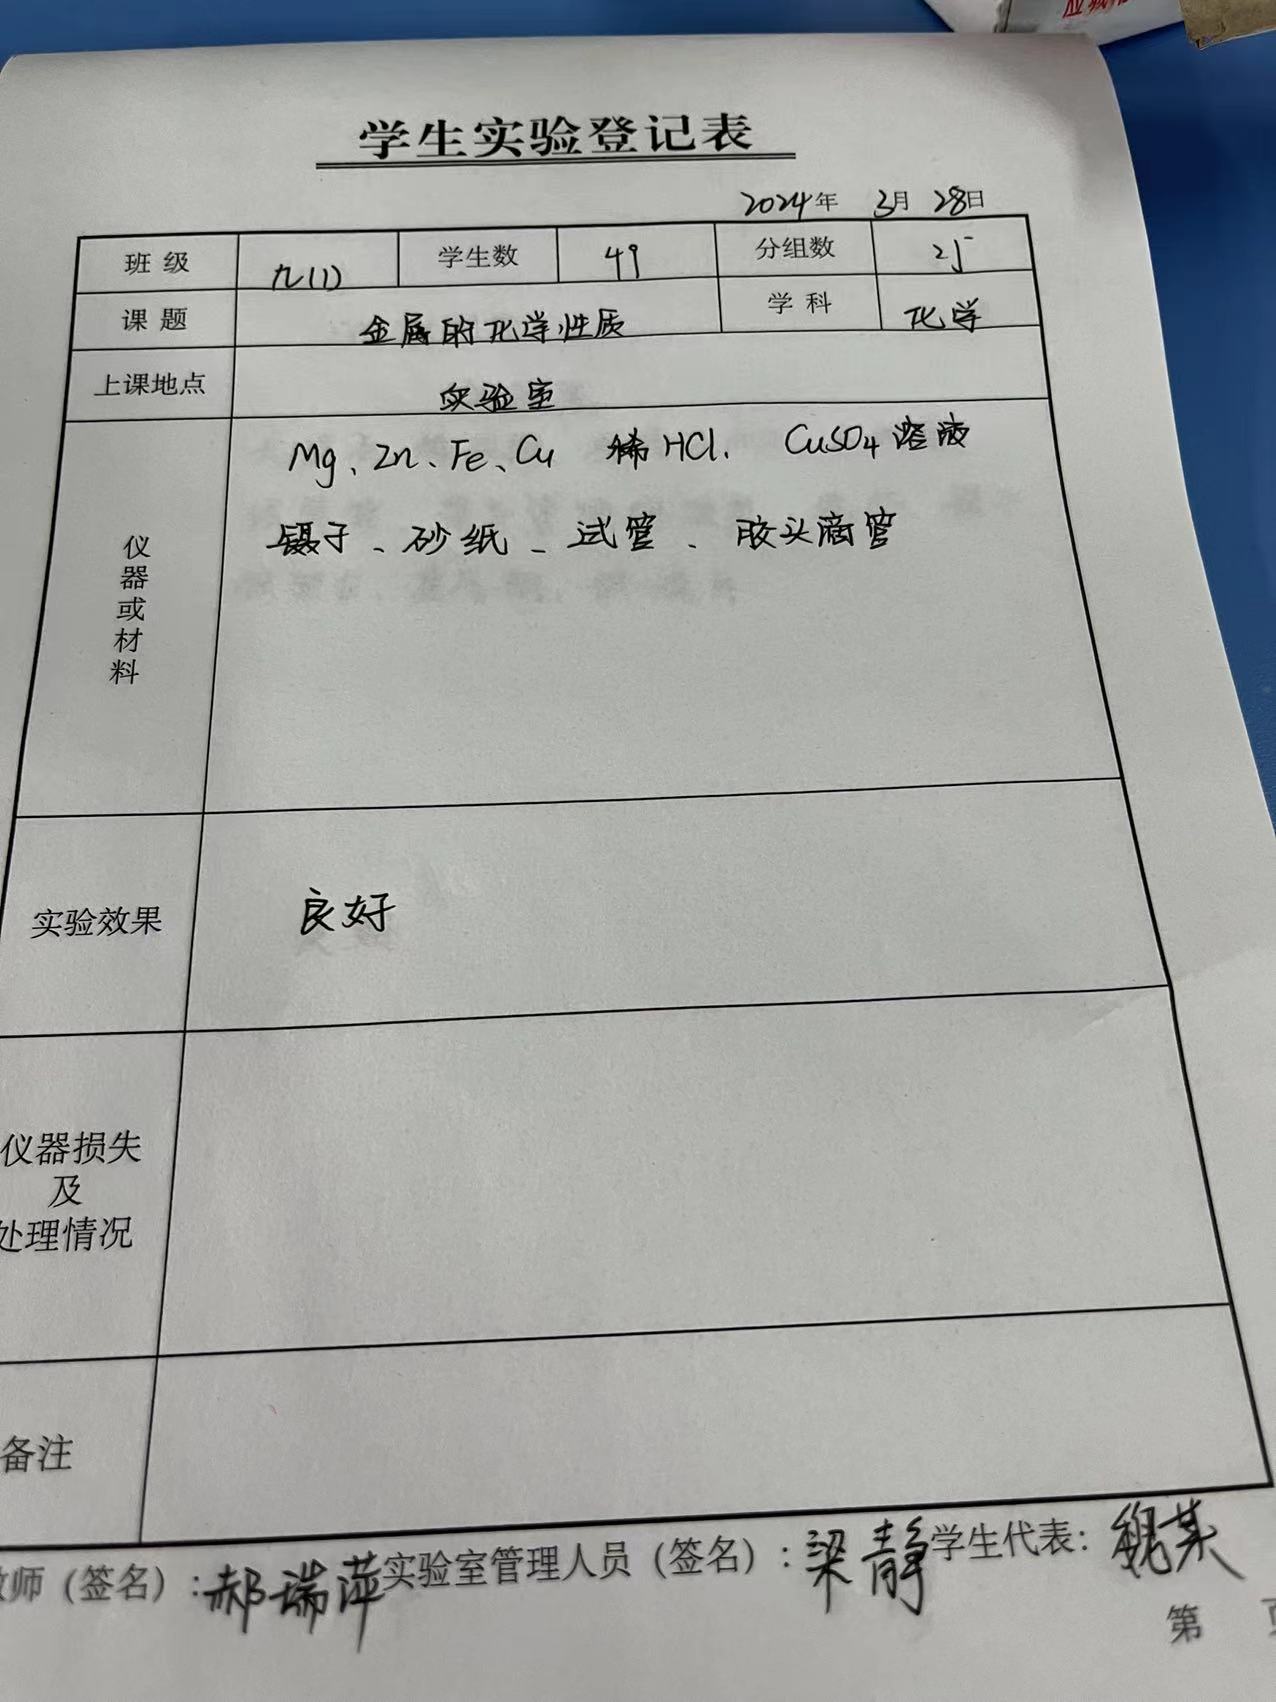 学生实验登记表
2024年 3月 28日
班级 九(1) 学生数 49 分组数 25
课题 金属的化学性质 学科 化学
上课地点 实验室
仪器或材料
Mg、Zn、Fe、Cu 稀HCl. CuSO4溶液
镊子、砂纸、试管、胶头滴管
实验效果 良好
仪器损失
及
处理情况
备注
师（签名）：郝瑞萍 实验室管理人员（签名）：梁静 学生代表：
第